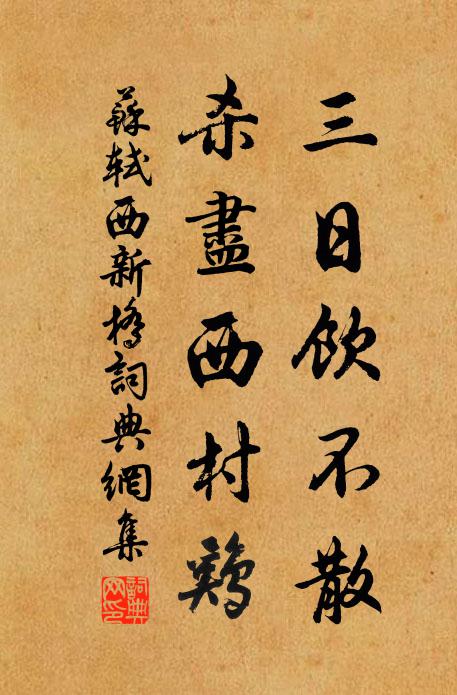 三日飲不散
杀盡西村鷄
蘇軾西新橋詞典網集
詞典網印